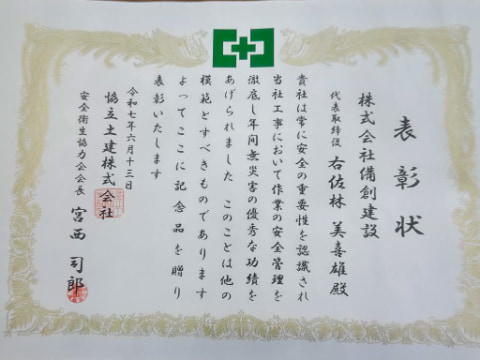 表彰状
株式会社備創建設
代表取締役 右佐林 美喜雄殿
貴社は常に安全の重要性を認識され
当社工事において作業の安全管理を
徹底し年間無災害の優秀な功績を
あげられました このことは他の
模範とすべきものであります
よってここに記念品を贈り
表彰いたします
令和七年六月十三日
協立土建株式会社
安全衛生協力会会長 宮西 司郎